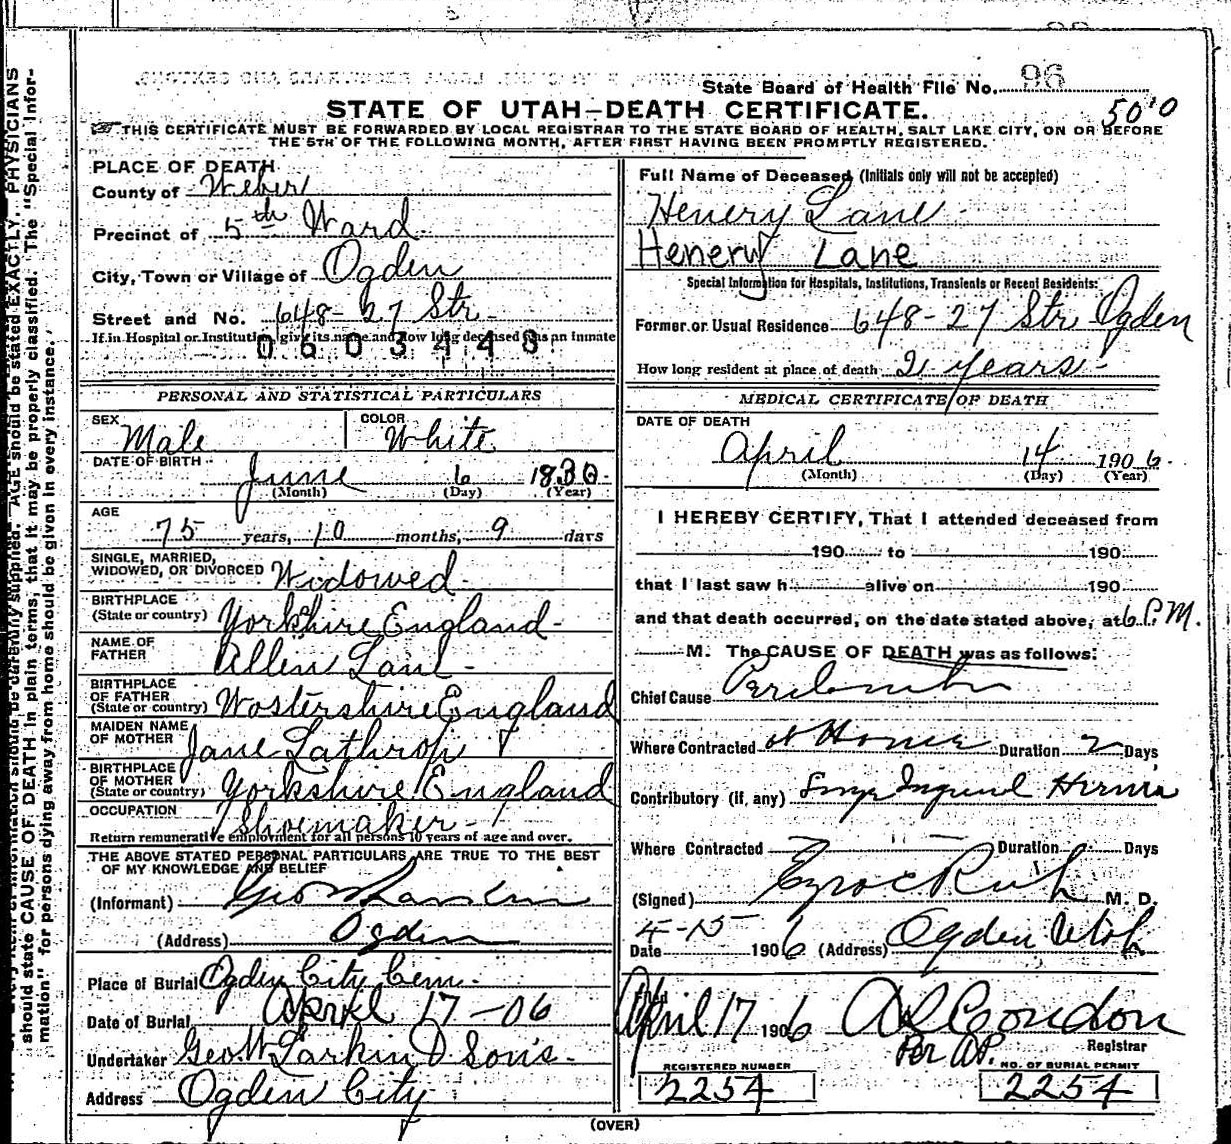 State Board of Health File No. 96
STATE OF UTAH—DEATH CERTIFICATE.
50'0
THIS CERTIFICATE MUST BE FORWARDED BY LOCAL REGISTRAR TO THE STATE BOARD OF HEALTH, SALT LAKE CITY, ON OR BEFORE
THE 5TH OF THE FOLLOWING MONTH, AFTER FIRST HAVING BEEN PROMPTLY REGISTERED.
should state CAUSE OF DEATH in plain terms, that it may be properly classified. The "Special Infor-
mation" for persons dying away from home should be given in every instance.
AGE should be stated EXACTLY. PHYSICIANS
PLACE OF DEATH
County of Weber
Precinct of 5th Ward
City, Town or Village of Ogden
Street and No. 648-27 Str.
If in Hospital or Institution, give its name and how long deceased was an inmate
0603448
PERSONAL AND STATISTICAL PARTICULARS
SEX Male
COLOR White
DATE OF BIRTH June 6 1830
(Month) (Day) (Year)
AGE
75 years, 10 months, 9 days
SINGLE, MARRIED,
WIDOWED, OR DIVORCED Widowed
BIRTHPLACE
(State or country) Yorkshire England
NAME OF
FATHER Allen Lane
BIRTHPLACE
OF FATHER
(State or country) Wostershire England
MAIDEN NAME
OF MOTHER Jane Lathrop
BIRTHPLACE
OF MOTHER
(State or country) Yorkshire England
OCCUPATION Shoemaker
Return remunerative employment for all persons 10 years of age and over.
THE ABOVE STATED PERSONAL PARTICULARS ARE TRUE TO THE BEST
OF MY KNOWLEDGE AND BELIEF
(Informant) Geo W Larkin
(Address) Ogden
Place of Burial Ogden City Cem.
Date of Burial April 17-06
Undertaker Geo W Larkin & Sons
Address Ogden City
Full Name of Deceased (Initials only will not be accepted)
Henery Lane
Henery Lane
Special Information for Hospitals, Institutions, Transients or Recent Residents:
Former or Usual Residence 648-27 Str Ogden
How long resident at place of death 21 years
MEDICAL CERTIFICATE OF DEATH
DATE OF DEATH
April 14 1906
(Month) (Day) (Year)
I HEREBY CERTIFY, That I attended deceased from
190 to 190
that I last saw h alive on 190
and that death occurred, on the date stated above, at 6 P.M.
M. The CAUSE OF DEATH was as follows:
Chief Cause
Where Contracted at Home Duration 2 Days
Contributory (if any) Inguinal Hernia
Where Contracted Duration Days
(Signed) M. D.
Date 4-15 1906 (Address) Ogden Utah
Filed April 17 1906 Condon
Per AP. Registrar
REGISTERED NUMBER
2254
NO. OF BURIAL PERMIT
2254
(OVER)